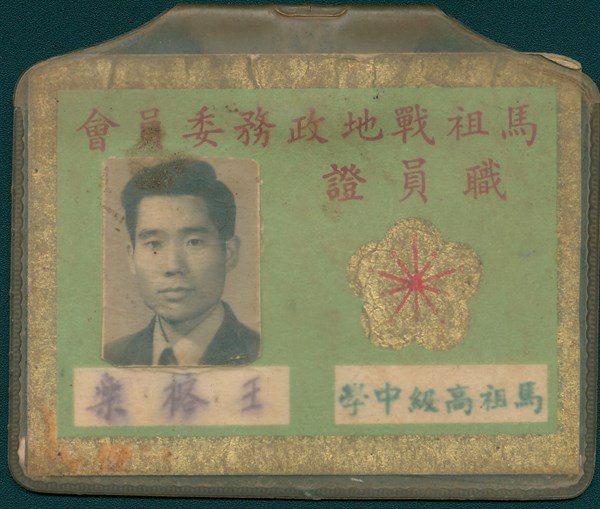 馬祖戰地政務委員會
職員證
馬祖高級中學
王榕